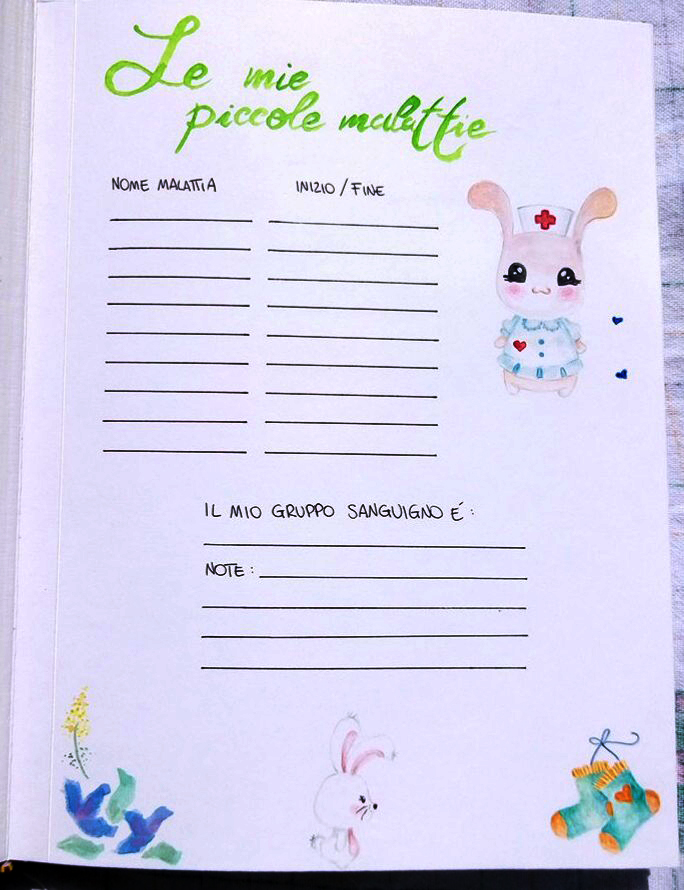 Le mie
piccole malattie
NOME MALATTIA INIZIO / FINE
IL MIO GRUPPO SANGUIGNO É :
NOTE :